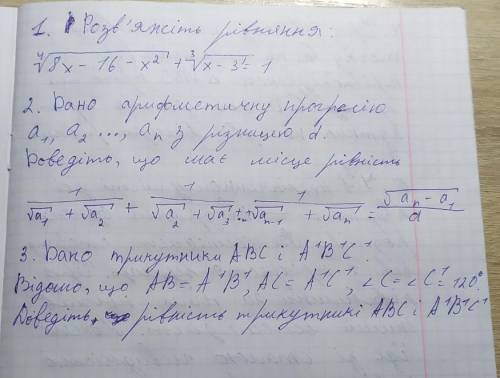 1. Розв'яжіть рівняння:
⁴√(8x - 16 - x²) + ³√(x - 3) = 1
2. Дано арифметичну прогресію
a₁, a₂ ..., aₙ з різницею d.
Доведіть, що має місце рівність
1/(√a₁ + √a₂) + 1/(√a₂ + √a₃) + ... + 1/(√aₙ₋₁ + √aₙ) = (√aₙ - a₁)/d
3. Дано трикутники ABC і A¹B¹C¹.
Відомо, що AB = A¹B¹, AC = A¹C¹, ∠C = ∠C¹ = 120°.
Доведіть, рівність трикутникі ABC і A¹B¹C¹